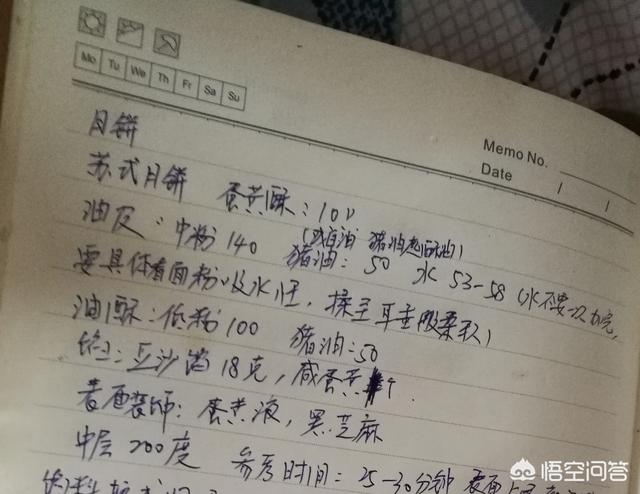 Mo Tu We Th Fr Sa Su
Memo No.
Date / /
月饼
苏式月饼 蛋黄酥:10个
油皮:中粉140 猪油:50 水53-58(水不要一次加完,
(或白油 猪油起酥油)
要具体看面粉吸水性,揉至耳垂般柔软)
油酥:低粉100 猪油:50
馅:豆沙馅18克,咸蛋黄
表面装饰:蛋黄液,黑芝麻
中层200度 参考时间:25-30分钟 表面上
馅料
悟空问答